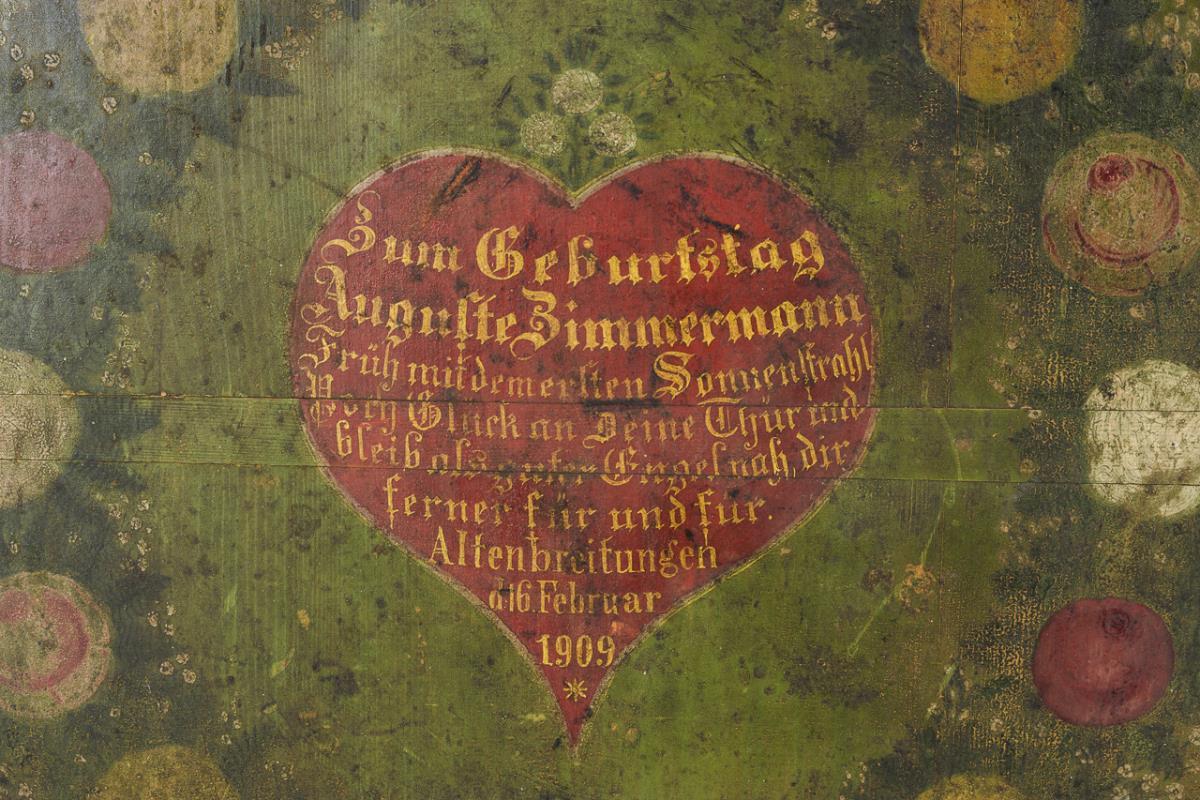 Zum Geburtstag
Auguste Zimmermann
Früh mit dem ersten Sonnenstrahl
Poch Glück an Deine Thür und
bleib als guter Engel nah, dir
ferner für und für.
Altenbreitungen
d 16. Februar
1909